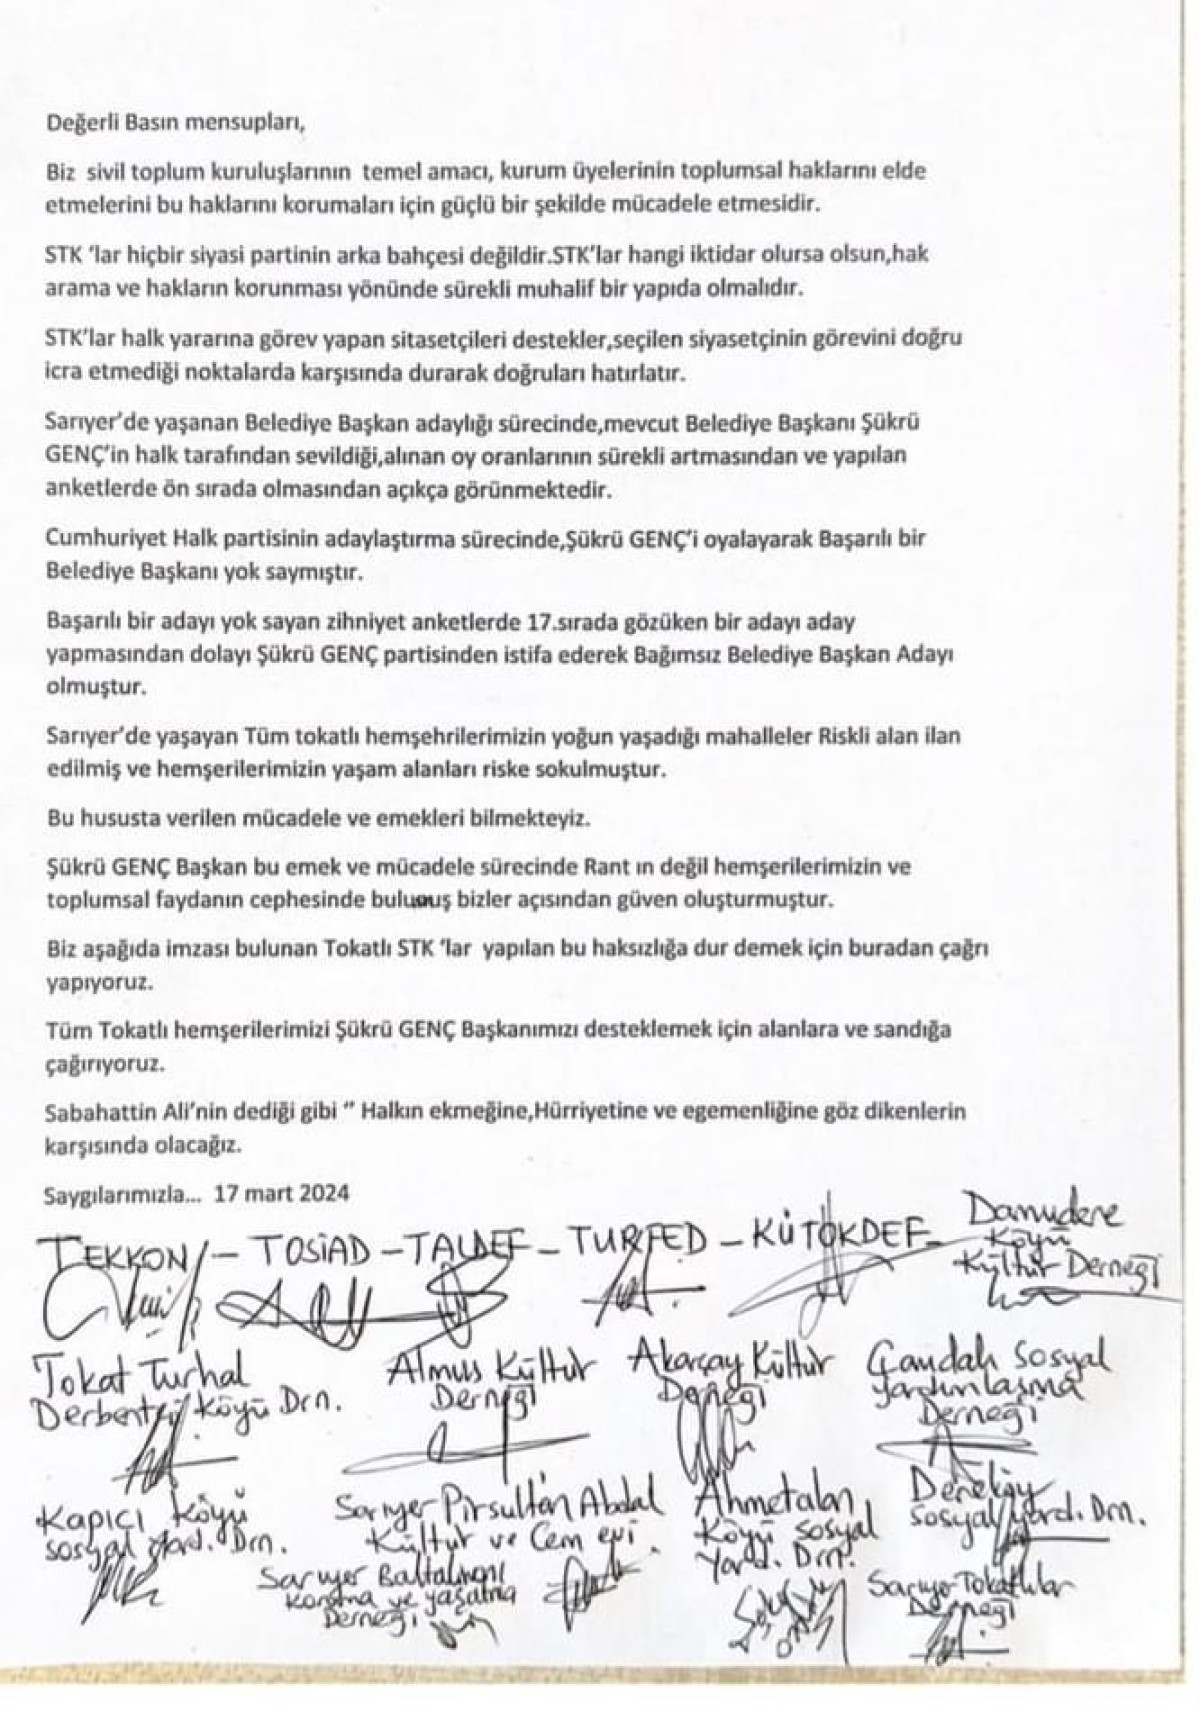 Değerli Basın mensupları,
Biz sivil toplum kuruluşlarının temel amacı, kurum üyelerinin toplumsal haklarını elde
etmelerini bu haklarını korumaları için güçlü bir şekilde mücadele etmesidir.
STK 'lar hiçbir siyasi partinin arka bahçesi değildir.STK'lar hangi iktidar olursa olsun,hak
arama ve hakların korunması yönünde sürekli muhalif bir yapıda olmalıdır.
STK'lar halk yararına görev yapan sitasetçileri destekler,seçilen siyasetçinin görevini doğru
icra etmediği noktalarda karşısında durarak doğruları hatırlatır.
Sarıyer'de yaşanan Belediye Başkan adaylığı sürecinde,mevcut Belediye Başkanı Şükrü
GENÇ'in halk tarafından sevildiği,alınan oy oranlarının sürekli artmasından ve yapılan
anketlerde ön sırada olmasından açıkça görünmektedir.
Cumhuriyet Halk partisinin adaylaştırma sürecinde,Şükrü GENÇ'i oyalayarak Başarılı bir
Belediye Başkanı yok saymıştır.
Başarılı bir adayı yok sayan zihniyet anketlerde 17.sırada gözüken bir adayı aday
yapmasından dolayı Şükrü GENÇ partisinden istifa ederek Bağımsız Belediye Başkan Adayı
olmuştur.
Sarıyer'de yaşayan Tüm tokatlı hemşehrilerimizin yoğun yaşadığı mahalleler Riskli alan ilan
edilmiş ve hemşerilerimizin yaşam alanları riske sokulmuştur.
Bu hususta verilen mücadele ve emekleri bilmekteyiz.
Şükrü GENÇ Başkan bu emek ve mücadele sürecinde Rant ın değil hemşerilerimizin ve
toplumsal faydanın cephesinde bulumuş bizler açısından güven oluşturmuştur.
Biz aşağıda imzası bulunan Tokatlı STK 'lar yapılan bu haksızlığa dur demek için buradan çağrı
yapıyoruz.
Tüm Tokatlı hemşerilerimizi Şükrü GENÇ Başkanımızı desteklemek için alanlara ve sandığa
çağırıyoruz.
Sabahattin Ali'nin dediği gibi " Halkın ekmeğine,Hürriyetine ve egemenliğine göz dikenlerin
karşısında olacağız.
Saygılarımızla... 17 mart 2024
TEKKON - TOSİAD - TALDEF - TURFED - KÜTOKDEF -
Damudere
Köyü
Kültür Derneği
Tokat Turhal
Derbentçi Köyü Drn.
Almus Kültür
Derneği
Akarçay Kültür
Derneği
Çamdalı Sosyal
yardımlaşma
Derneği
Kapıcı Köyü
sosyal yard. Drn.
Sarıyer Pirsultan Abdal
Kültür ve Cem evi
Ahmetalan
Köyü sosyal
Yard. Drn.
Dereköy
sosyal yard. Drn.
Sarıyer Baltalimanı
Koruma ve yaşatma
Derneği
Sarıyer Tokatlılar
Derneği